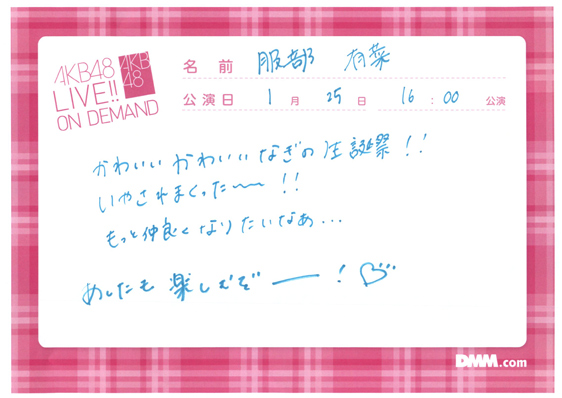 AKB48
LIVE!!
ON DEMAND
AKB
48
名前 服部 有菜
公演日 1月 25日 16:00 公演
かわいいかわいいなぎの生誕祭!!
いやされまくった〜!!
もっと仲良くなりたいなあ...
あしたも楽しむぞー!♡
DMM.com